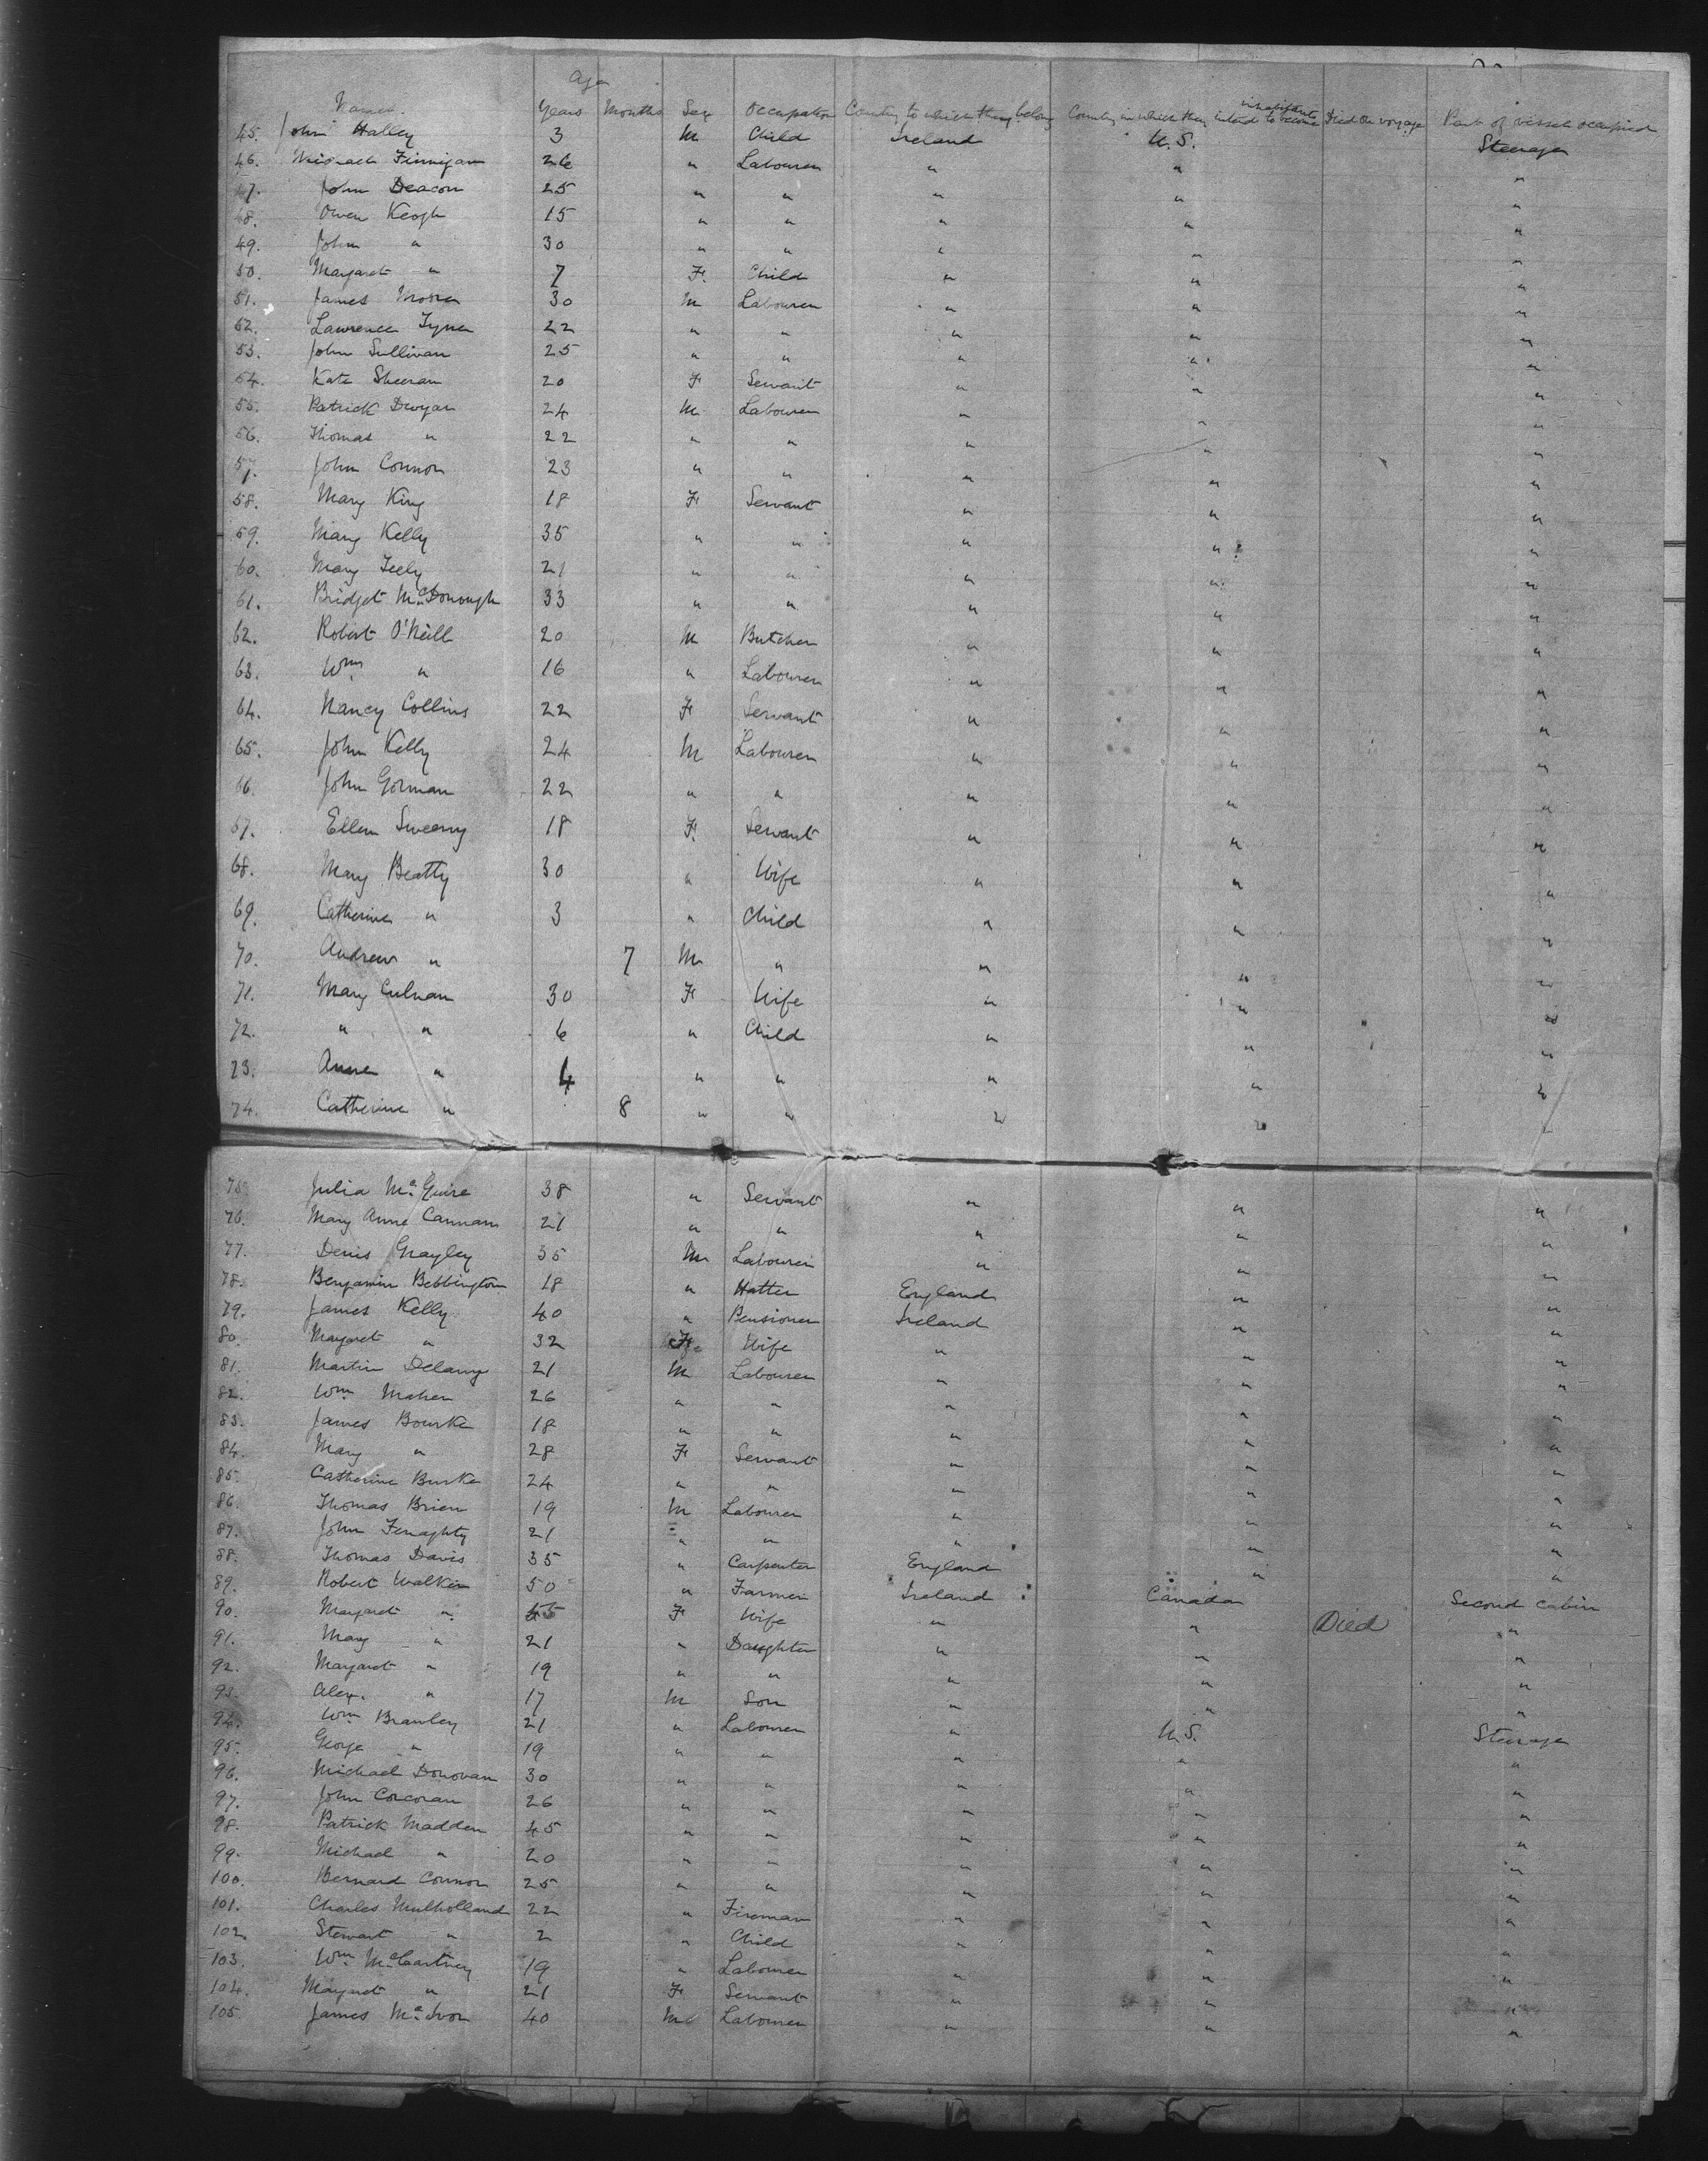 Age
Names Years Months Sex Occupation Country to which they belong Country in which they intend to become inhabitants Died on voyage Part of vessel occupied
45. John Halley 3 M Child Ireland U.S. Steerage
46. Michael Finnigan 26 " Labourer " " "
47. John Deacon 25 " " " " "
48. Owen Keogh 15 " " " " "
49. John " 30 " " " " "
50. Margaret " 7 F. Child " " "
51. James Moore 30 M Labourer " " "
52. Lawrence Tynan 22 " " " " "
53. John Sullivan 25 " " " " "
54. Kate Sheeran 20 F Servant " " "
55. Patrick Dwyar 24 M Labourer " " "
56. Thomas " 22 " " " " "
57. John Connor 23 " " " " "
58. Mary King 18 F Servant " " "
59. Mary Kelly 35 " " " " "
60. Mary Feely 21 " " " " "
61. Bridget McDonough 33 " " " " "
62. Robert O'Neill 20 M Butcher " " "
63. Wm " 16 " Labourer " " "
64. Nancy Collins 22 F Servant " " "
65. John Kelly 24 M Labourer " " "
66. John Gorman 22 " " " " "
67. Ellen Sweeny 18 F. Servant " " "
68. Mary Beatty 30 " Wife " " "
69. Catherine " 3 " Child " " "
70. Andrew " 7 M " " " "
71. Mary Culnan 30 F Wife " " "
72. " " 6 " Child " " "
73. Anne " 4 " " " " "
74. Catherine " 8 " " " " "
75. Julia McGuire 38 " Servant " " "
76. Mary Anne Cannam 21 " " " " "
77. Denis Grayley 35 M Labourer " " "
78. Benjamin Bebbington 18 " Hatter England " "
79. James Kelly 40 " Pensioner Ireland " "
80. Margaret " 32 F Wife " " "
81. Martin Delany 21 M Labourer " " "
82. Wm Maher 26 " " " " "
83. James Bourke 18 " " " " "
84. Mary " 28 F Servant " " "
85. Catherine Burke 24 " " " " "
86. Thomas Brien 19 M Labourer " " "
87. John Fenaghty 21 " " " " "
88. Thomas Davis 35 " Carpenter England " "
89. Robert Walker 50 " Farmer Ireland Canada Second Cabin
90. Margaret " 45 F Wife " " Died "
91. Mary " 21 " Daughter " " "
92. Margaret " 19 " " " " "
93. Alex. " 17 M Son " " "
94. Wm Brawley 21 " Labourer " U.S. Steerage
95. George " 19 " " " " "
96. Michael Donovan 30 " " " " "
97. John Corcoran 26 " " " " "
98. Patrick Madden 45 " " " " "
99. Michael " 20 " " " " "
100. Bernard Connor 25 " " " " "
101. Charles Mulholland 22 " Fireman " " "
102. Stewart " 2 " Child " " "
103. Wm McCartney 19 " Labourer " " "
104. Margaret " 21 F Servant " " "
105. James McIvor 40 M Labourer " " "